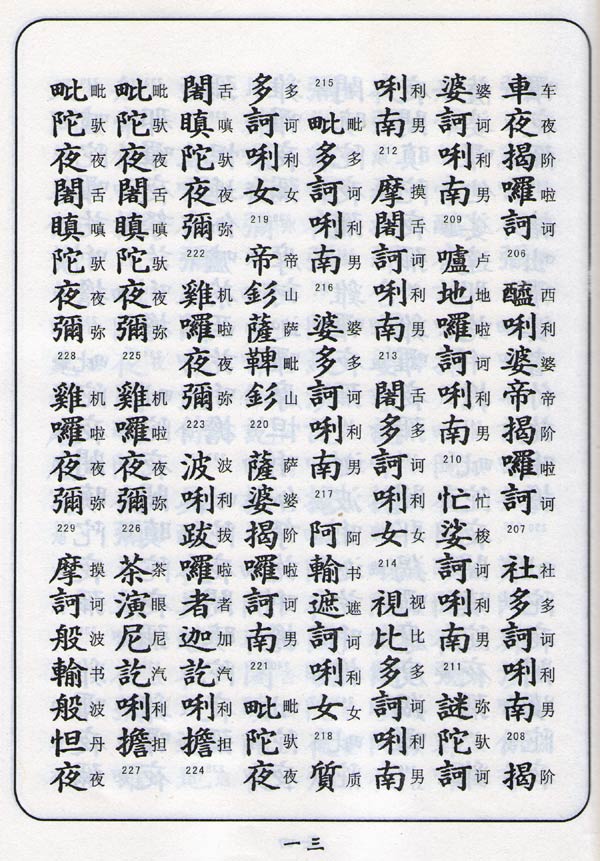 車夜揭囉訶 206 醯唎婆帝揭囉訶 207 社多訶唎南 208 揭
车夜阶啦诃 西利婆帝阶啦诃 社多诃利男 阶
婆訶唎南 209 嚧地囉訶唎南 210 忙娑訶唎南 211 謎陀訶
婆诃利男 卢地啦诃利男 忙梭诃利男 弥驮诃
唎南 212 摩闍訶唎南 213 闍多訶唎女 214 視比多訶唎南
利男 摸舌诃利男 舌多诃利女 视比多诃利男
215 毗多訶唎南 216 婆多訶唎南 217 阿輸遮訶唎女 218 質
毗多诃利男 婆多诃利男 阿书遮诃利女 质
多訶唎女 219 帝釤薩鞞釤 220 薩婆揭囉訶南 221 毗陀夜
多诃利女 帝山萨毗山 萨婆阶啦诃男 毗驮夜
闍瞋陀夜彌 222 雞囉夜彌 223 波唎跋囉者迦訖唎擔 224
舌嗔驮夜弥 机啦夜弥 波利拔啦者加汽利担
毗陀夜闍瞋陀夜彌 225 雞囉夜彌 226 茶演尼訖唎擔 227
毗驮夜舌嗔驮夜弥 机啦夜弥 茶眼尼汽利担
毗陀夜闍瞋陀夜彌 228 雞囉夜彌 229 摩訶般輸般怛夜
毗驮夜舌嗔驮夜弥 机啦夜弥 摸诃波书波丹夜
一三